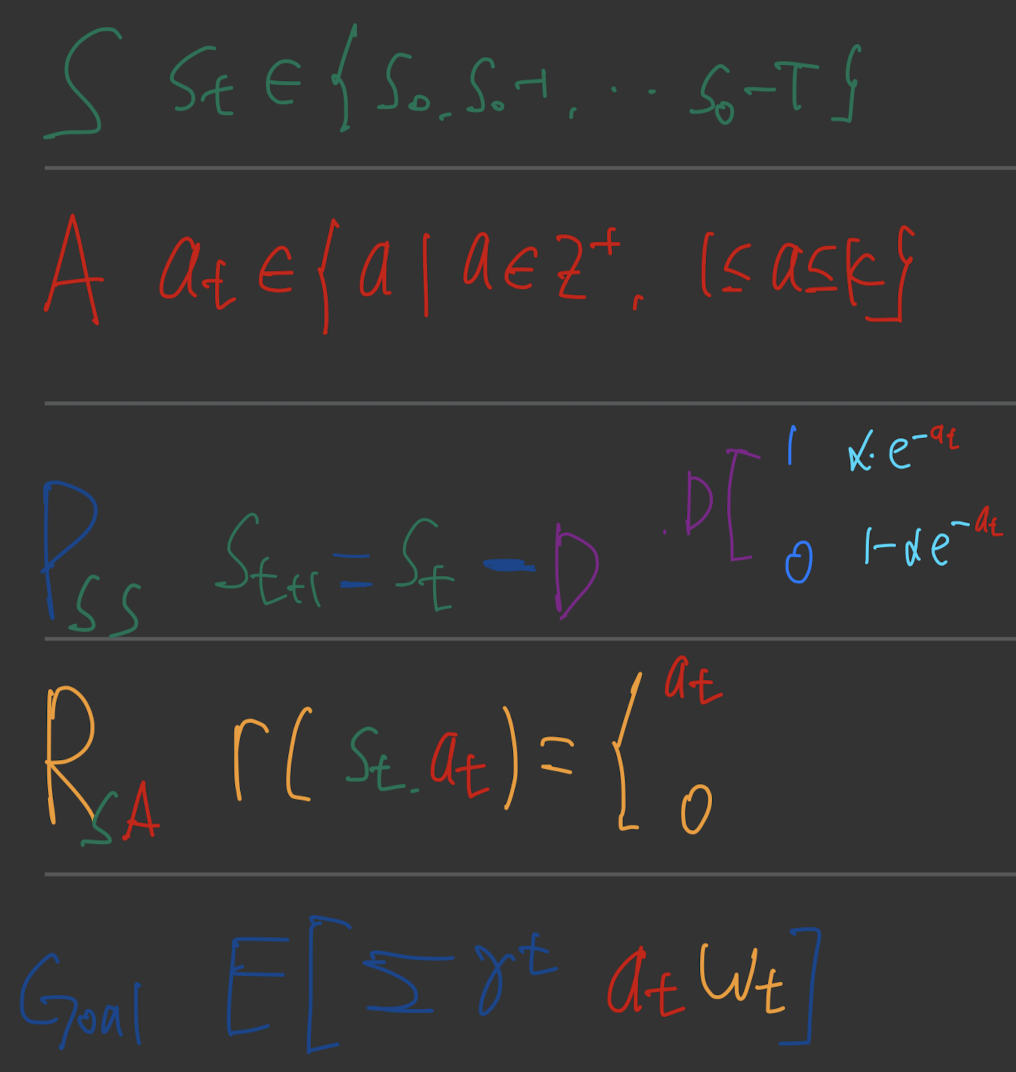 S S_t ∈ {S_0, S_0-1, ... S_0-T}
A a_t ∈ {a | a ∈ Z^+, 1 ≤ a ≤ K}
P_SS S_{t+1} = S_t - D . D [ 1 α·e^{-a_t}
0 1-αe^{-a_t}
R_SA r(S_t, a_t) = { a_t
0
Goal E[Σ γ^t a_t w_t]